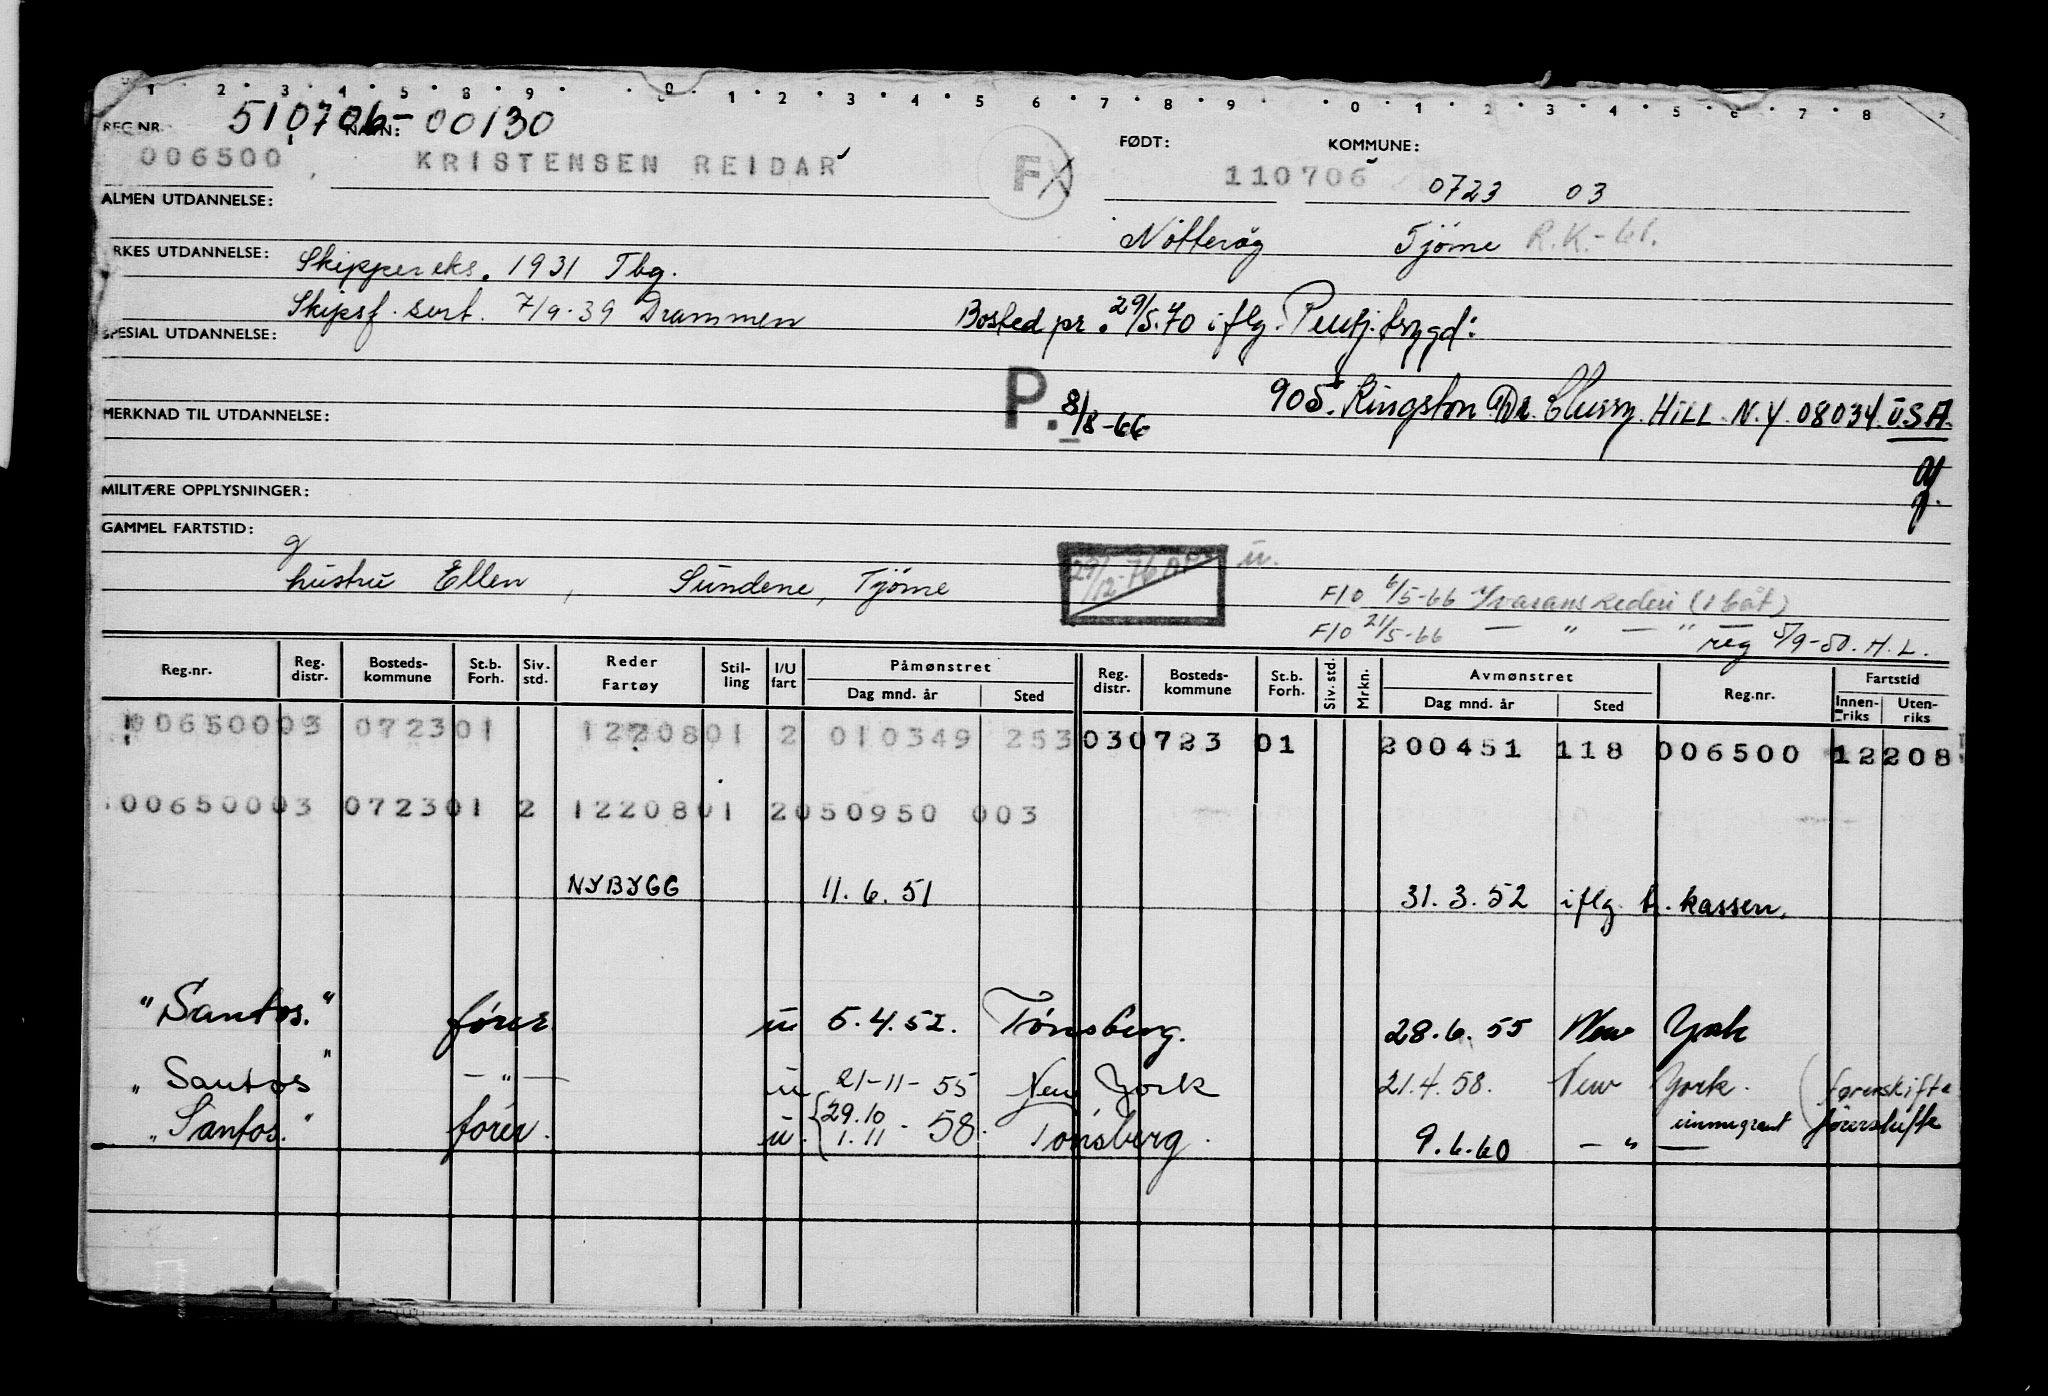 1 2 3 4 5 8 9 0 1 2 3 4 5 6 7 8 9 0 1 2 3 4 5 6 7 8
510706-00130
REG.NR. NAVN: FØDT: KOMMUNE:
006500 KRISTENSEN REIDAR F 110706 0723 03
ALMEN UTDANNELSE:
Nøtterøy Tjøme R.K.-61.
RKES UTDANNELSE: Skippereks. 1931 Tbg.
Skipsf. sert. 7/9-39 Drammen Bosted pr. 29/5.70 iflg.
SPESIAL UTDANNELSE:
P. 8/8-66 905. Kingston Dr. HILL. N.Y. 08034. U.S.A.
MERKNAD TIL UTDANNELSE:
MILITÆRE OPPLYSNINGER:
GAMMEL FARTSTID:
hustru Ellen, Sundene, Tjøme 29/12-76 u.
F10 6/5-66 Yvarans Rederi (1 båt)
F10 21/5-66 — " — " —
reg 5/9-80. H.L.
Reg.nr. Reg. distr. Bosteds-kommune St.b. Forh. Siv. std. Reder Fartøy Stil-ling I/U fart Påmønstret Dag mnd. år Sted Reg. distr. Bosteds-kommune St.b. Forh. Siv. std. Mrkn. Avmønstret Dag mnd. år Sted Reg.nr. Fartstid Innen-riks Uten-riks
00650003 072301 1220801 2 010349 253 030723 01 200451 118 006500 12208
00650003 072301 2 1220801 2050950 003
NYBYGG 11.6.51 31.3.52 iflg. tr. kassen.
"Santos." fører u 5.4.52. Tønsberg. 28.6.55 New York
"Santos" — " — u 21-11-55 New York 21.4.58. New York. (førerskifte
"Santos." fører. u. 29.10 1.11 - 58. Tønsberg. 9.6.60 — " — immigrant førerskifte